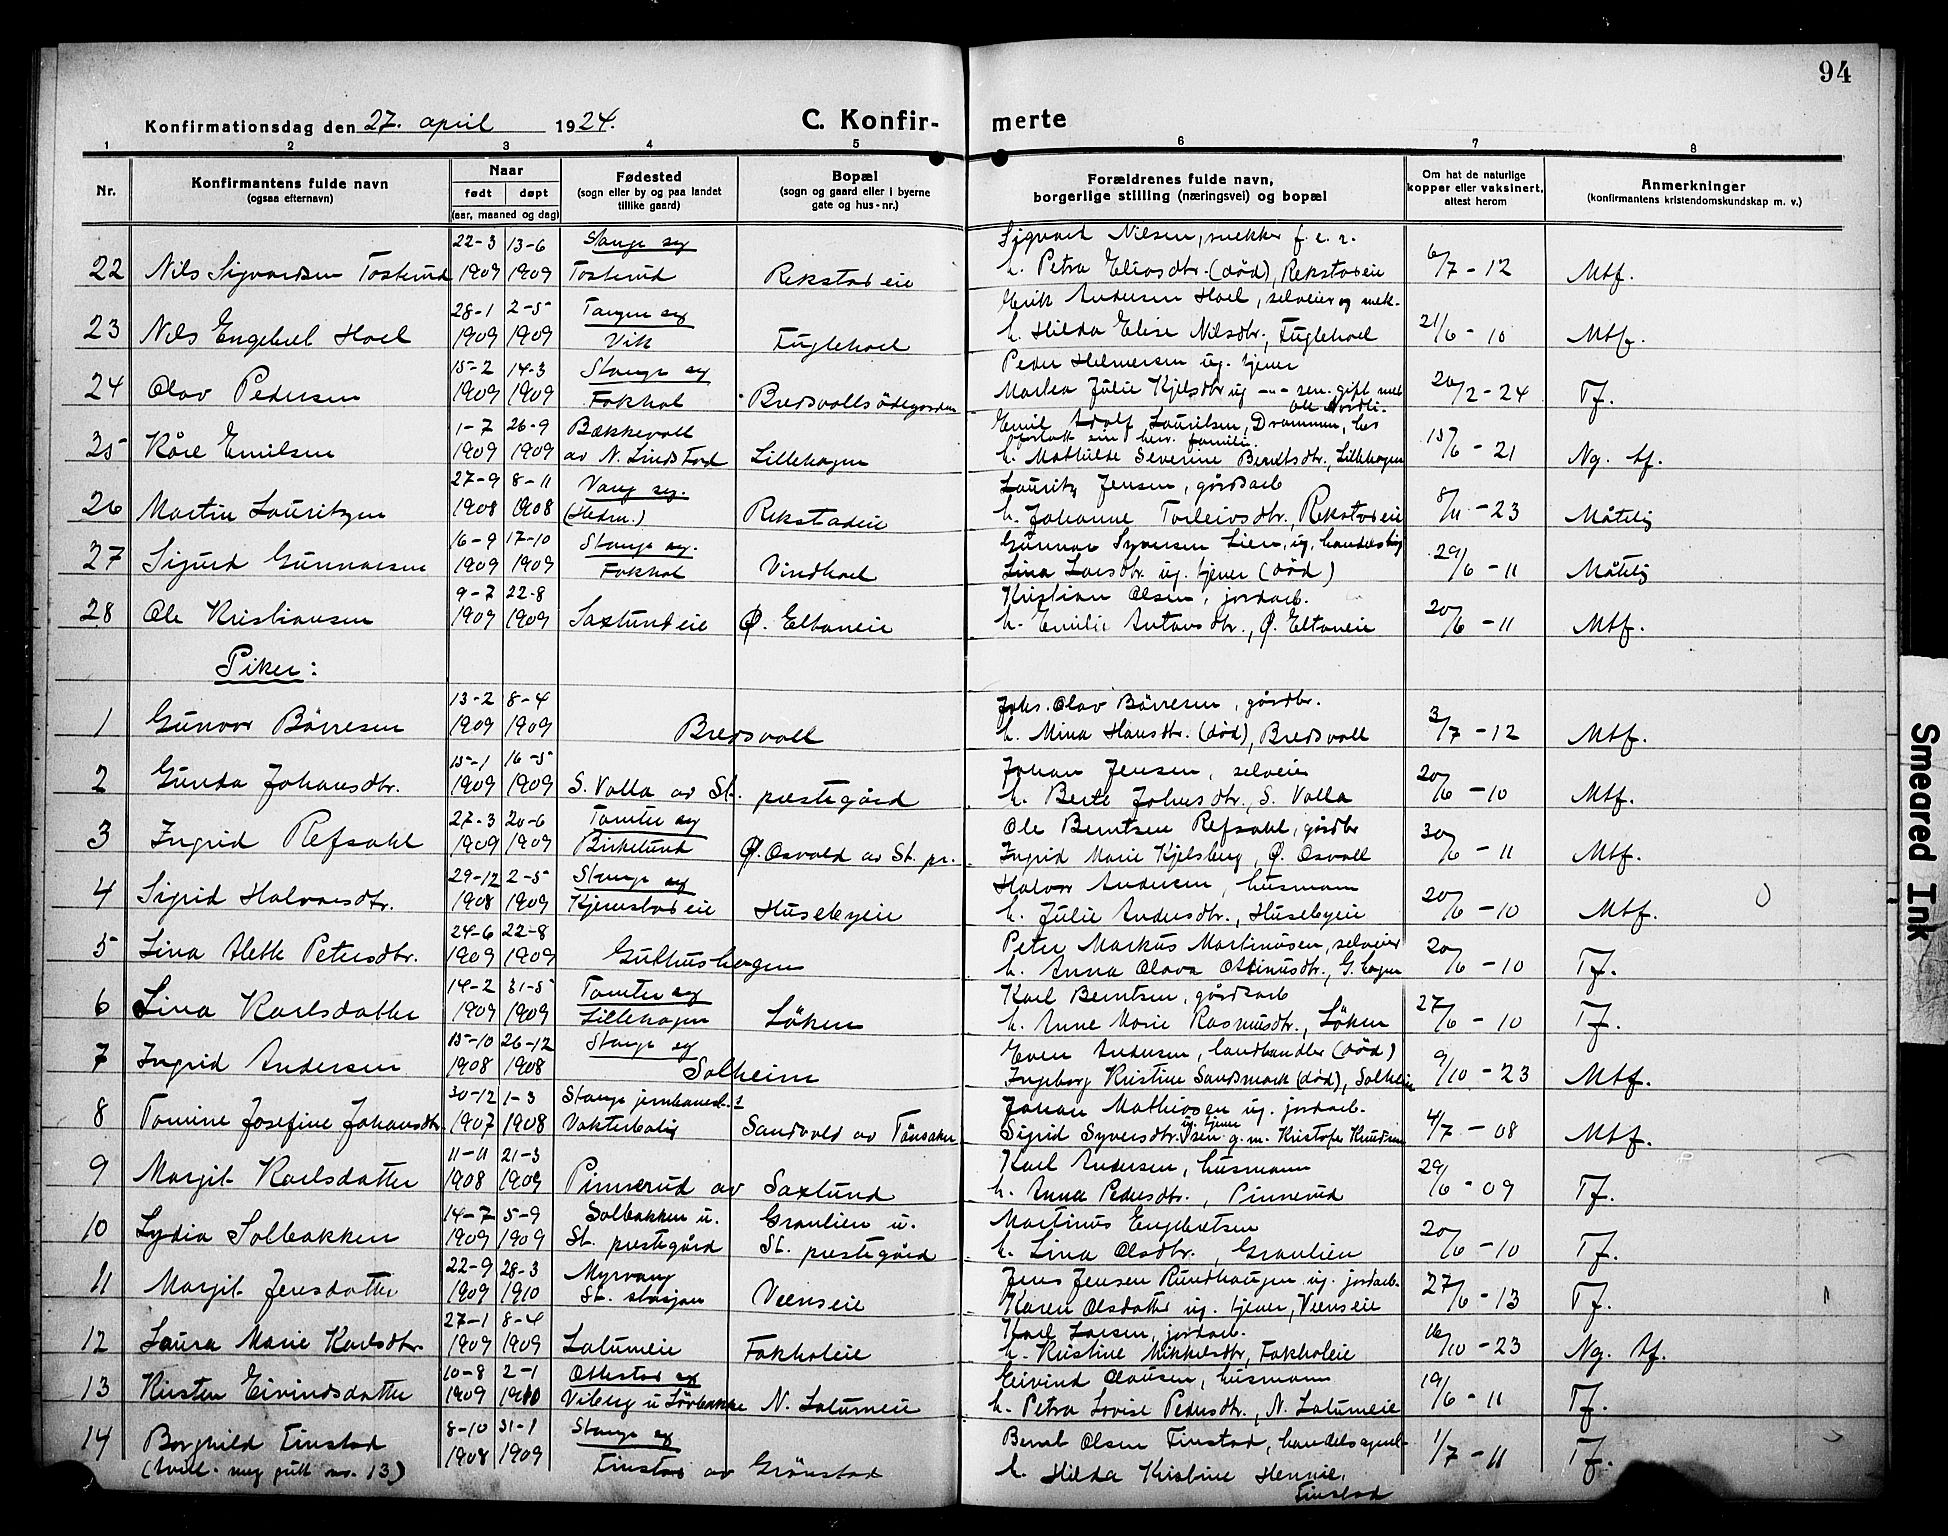 94
Konfirmationsdag den 27. april 1924.
C. Konfirmerte
1 2 3 4 5 6 7 8
Nr.
Konfirmantens fulde navn
(ogsaa efternavn)
Naar
født døpt
(aar, maaned og dag)
Fødested
(sogn eller by og paa landet
tillike gaard)
Bopæl
(sogn og gaard eller i byerne
gate og hus-nr.)
Forældrenes fulde navn,
borgerlige stilling (næringsvei) og bopæl
Om hat de naturlige
kopper eller vaksinert,
attest herom
Anmerkninger
(konfirmantens kristendomskundskap m. v.)
22-3 13-6 Stange sg Sigvard Nilsen, snekker f.e.r.
22 Nils Sigvardsen Tosterud 1909 1909 Tosterud Rekstadeie h. Petra Eliasdtr. (død), Rekstadeie 6/7 - 12 Mtf.
28-1 2-5 Tangen sg Erik Andersen Hoel, selveier og mek.
23 Nils Engebret Hoel 1909 1909 Vik Fuglehoel h. Hilda Elise Nilsdtr., Fuglehoel 21/6 - 10 Mtf.
15-2 14-3 Stange sg Peder Helmersen ug. tjener
24 Olav Pedersen 1909 1909 Fokhol Bredsvollsødegården Martea Julie Kjelsdtr ug -"- sen. gift med 26/2 - 24 Tf.
Ole Nordli.
1-7 26-9 Bækkevoll Emil Adolf Lauritsen, Drammen, har
forlatt sin herv. familie.
25 Kåre Emilsen 1909 1909 av N. Lindstad Lillehagen h. Mathilde Severine Berntsdtr., Lillehagen 15/6 - 21 Ng. tf.
27-9 8-11 Vang sg. Lauritz Jensen, gårdsarb
26 Martin Lauritzen 1908 1908 (Hedm.) Rekstadeie h. Johanne Torleivsdtr., Rekstadeie 8/11 - 23 Måtelig
16-9 17-10 Stange sg. Gunnar Syversen Lien, ug. handelsbtj
27 Sigurd Gunnarsen 1909 1909 Fokhol Vindhoel Lina Larsdtr. ug. tjener (død) 29/6 - 11 Måtelig
9-7 22-8 Kristian Olsen, jordarb.
28 Ole Kristiansen 1909 1909 Saxlundeie Ø. Eltoneie h. Emilie Antonsdtr., Ø. Eltoneie 20/6 - 11 Mtf.
Piker:
13-2 8-4 Johs. Olav Børresen, gårdbr.
1 Gunvor Børresen 1909 1909 Bredsvoll h. Mina Hansdtr. (død), Bredsvoll 3/7 - 12 Mtf.
15-1 16-5 Johan Jensen, selveier
2 Gunda Johansdtr. 1909 1909 S. Volla av St. prestegård h. Berte Johnsdtr., S. Volla 20/6 - 10 Mtf.
27-3 20-6 Tomter sg Ole Berntsen Refsahl, gårdbr
3 Ingrid Refsahl 1909 1909 Birkelund Ø. Osvold av St. pr. Ingrid Marie Kjelsberg, Ø. Osvoll 30/6 - 11 Mtf.
29-12 2-5 Stange sg Halvor Andersen, husmann
4 Sigrid Halvorsdtr. 1908 1909 Kjernstadeie Husebyeie h. Julie Andersdtr., Husebyeie 20/6 - 10 Mtf.
24-6 22-8 Peter Markus Martinusen, selveier
5 Lina Alette Petersdtr. 1909 1909 Guthushagen h. Anna Olava Ottinusdtr., G.hagen 20/6 - 10 Tf.
14-2 31-5 Tomter sg Karl Berntsen, gårdsarb
6 Lina Karlsdatter 1909 1909 Lillehagen Løken h. Anne Marie Rasmusdtr., Løken 27/6 - 10 Tf.
15-10 26-12 Stange sg Even Andersen, landhandler (død)
7 Ingrid Andersen 1908 1908 Solheim Ingeborg Kristine Sandsmark (død), Solheim 9/10 - 23 Mtf.
30-12 1-3 Stange jernbanest. Johan Mathiasen ug. jordarb.
ug. tjener
8 Tomine Josefine Johansdtr. 1907 1908 Vokterbolig Sandvold av Tønsaker Sigrid Syversdtr. sen g.m. Kristofer Knudsen 4/7 - 08 Mtf.
11-11 21-3 Karl Andersen, husmann
9 Margit Karlsdatter 1908 1909 Pinnerud av Saxlund h. Anna Pedersdtr., Pinnerud 29/6 - 09 Tf.
14-7 5-9 Solbakken u. Granlien u. Martinus Engebretsen
10 Lydia Solbakken 1909 1909 St. prestegård St. prestegård h. Lina Olsdtr., Granlien 20/6 - 10 Tf.
22-9 28-3 Myrvang Jens Jensen Rundhaugen ug. jordarb.
11 Margit Jensdatter 1909 1910 St. stasjon Veenseie Karen Olsdatter ug. tjener, Veenseie 27/6 - 13 Tf.
27-1 8-4 Karl Larsen, jordarb.
12 Laura Marie Karlsdtr 1909 1909 Lalumeie Fokholeie h. Kristine Mikkelsdtr, Fokholeie 16/10 - 23 Ng. tf.
10-8 2-1 Ottestad sg Eivind Clausen, husmann
13 Kirsten Eivindsdatter 1909 1910 Viberg u Lørbakke N. Lalumeie h. Petra Lovise Pedersdtr., N. Lalumeie 19/6 - 11 Tf.
8-10 31-1 Stange sg Bernt Olsen Finstad, handelsagent
14 Borghild Finstad 1908 1909 Finstad av Grønstad h. Hilda Kristine Hennie, 1/7 - 11 Tf.
(tvil. meg gutt no. 13) Finstad
Smeared Ink